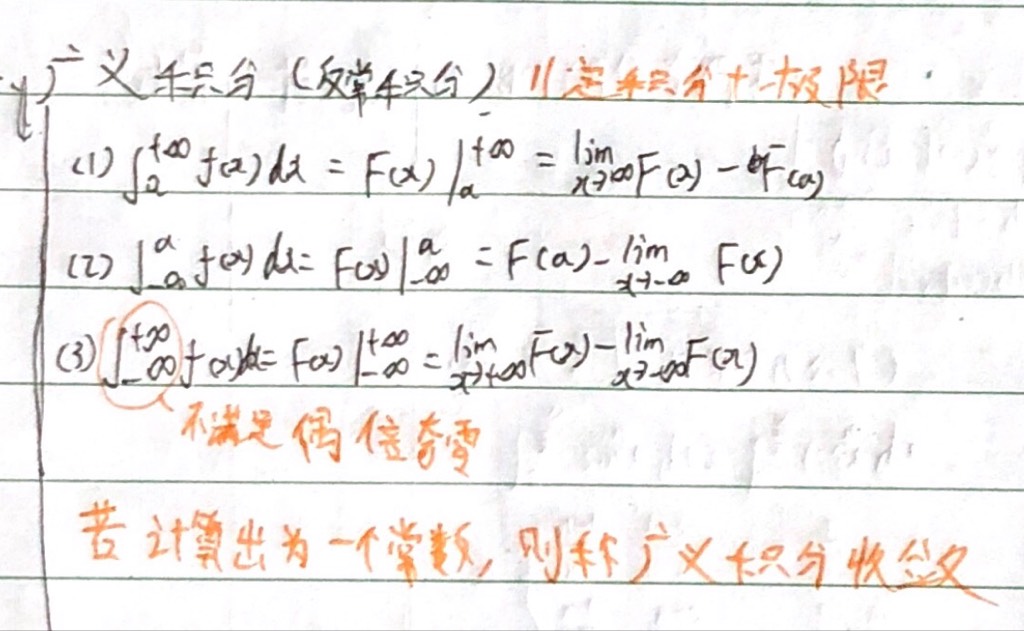 广义积分(反常积分) 11定积分+极限
(1) ∫_a^{+∞} f(x)dx = F(x)|_a^{+∞} = lim_{x→+∞} F(x) - F(a)
(2) ∫_{-∞}^a f(x)dx = F(x)|_{-∞}^a = F(a) - lim_{x→-∞} F(x)
(3) ∫_{-∞}^{+∞} f(x)dx = F(x)|_{-∞}^{+∞} = lim_{x→+∞} F(x) - lim_{x→-∞} F(x)
不满足偶倍奇零
若计算出为一个常数,则称广义积分收敛